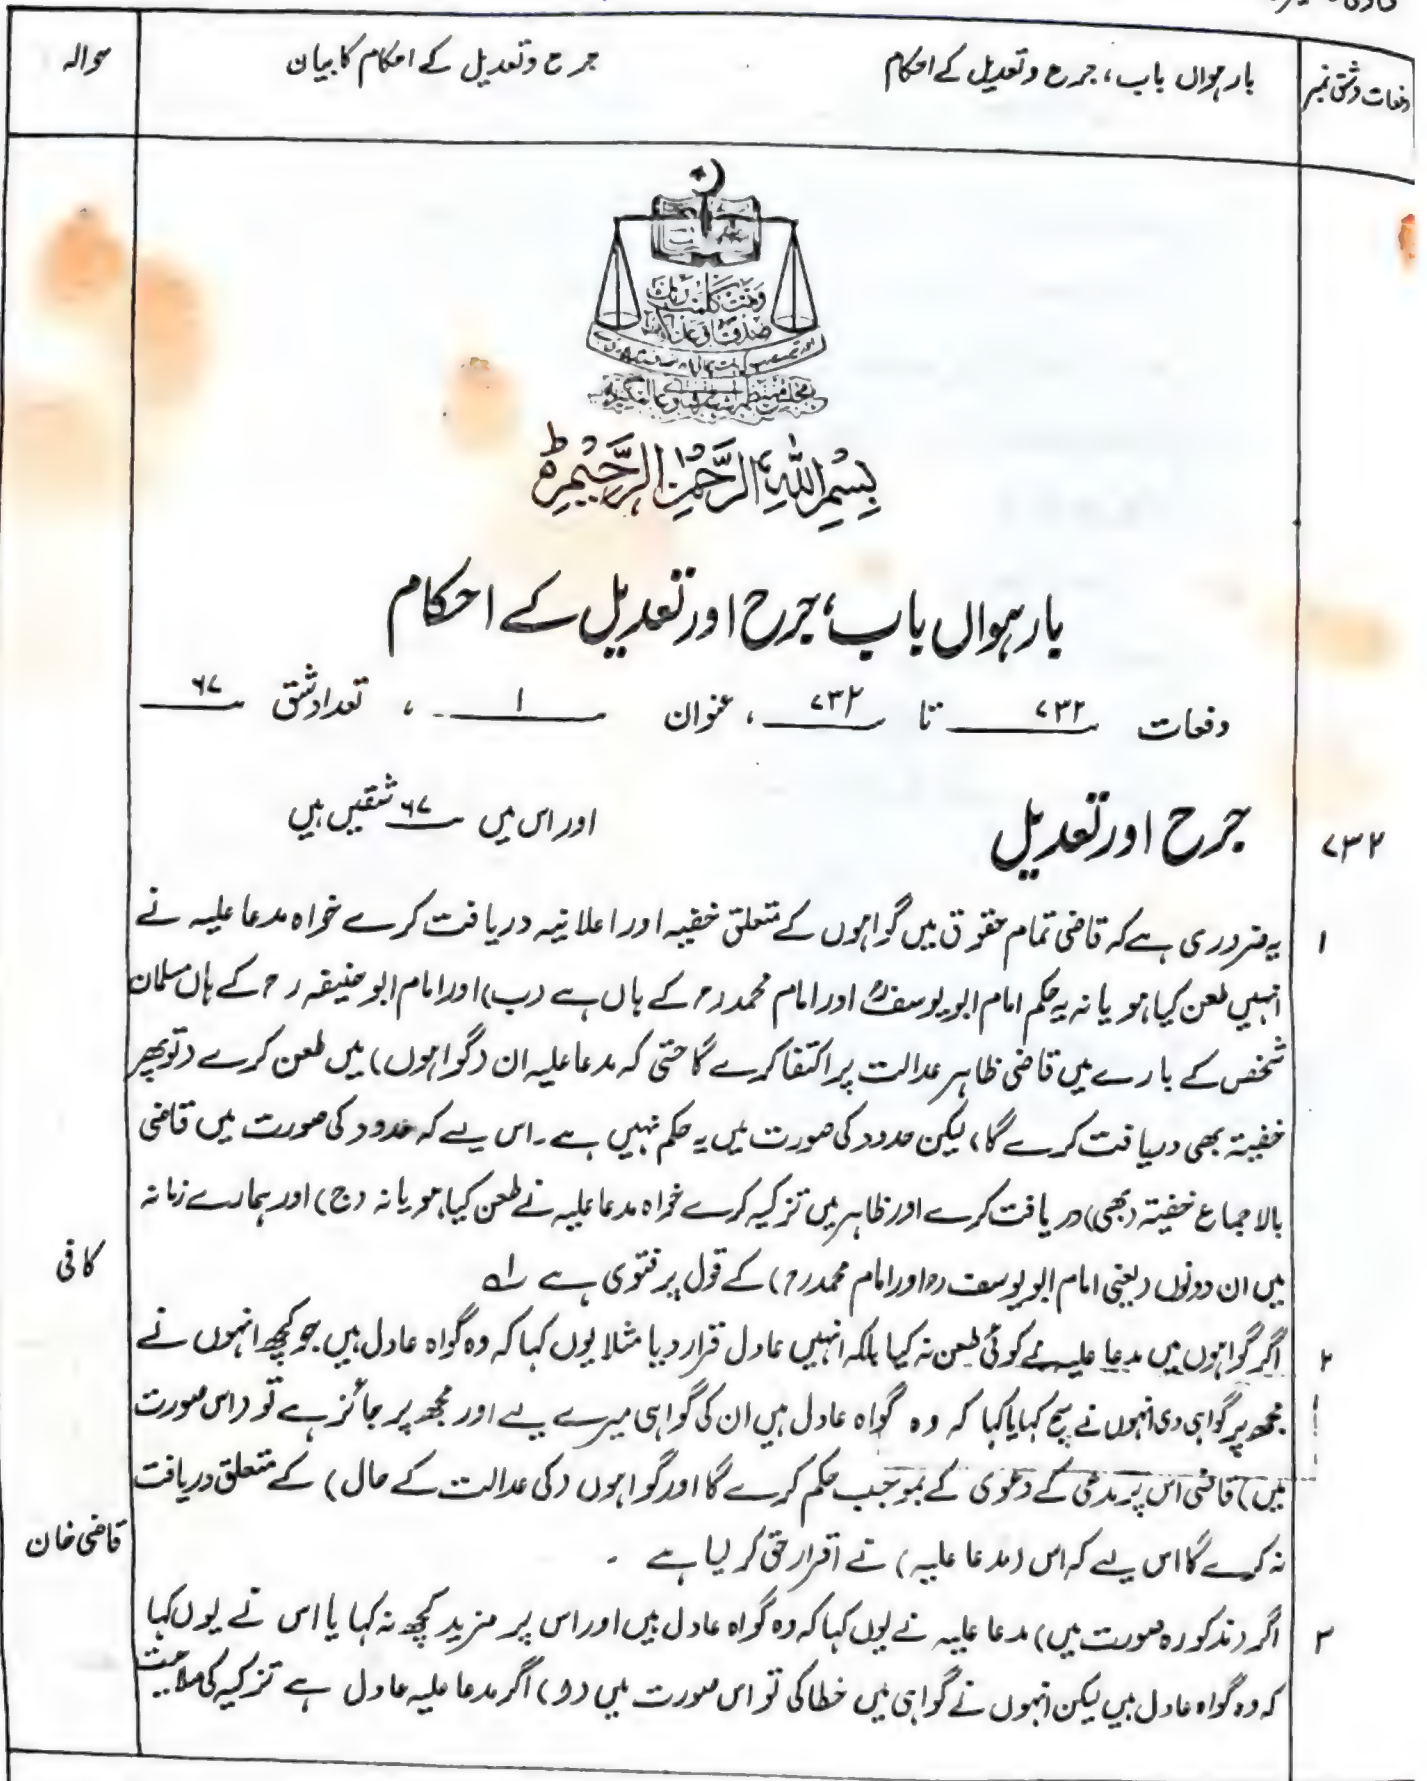 دفعات و شق نمبر
بارہواں باب، جرح و تعدیل کے احکام
جرح و تعدیل کے احکام کا بیان
حوالہ
وَتَمَّتْ كَلِمَتُ رَبِّكَ
صِدْقًا وَّعَدْلًا
بِسْمِ اللهِ الرَّحْمٰنِ الرَّحِيْمِ ط
بارہواں باب، جرح اور تعدیل کے احکام
دفعات ۷۳۲ تا ۷۳۲، عنوان ۱، تعداد شق ۶۷
۷۳۲ جرح اور تعدیل اور اس میں ۶۷ شقیں ہیں
۱ یہ ضروری ہے کہ قاضی تمام حقوق میں گواہوں کے متعلق خفیہ اور اعلانیہ دریافت کرے خواہ مدعا علیہ نے
انہیں طعن کیا ہو یا نہ یہ حکم امام ابو یوسفؒ اور امام محمد رح کے ہاں ہے (ب) اور امام ابو حنیفہ رح کے ہاں مسلمان
شخص کے بارے میں قاضی ظاہر عدالت پر اکتفا کرے گا حتی کہ مدعا علیہ ان (گواہوں) میں طعن کرے (تو پھر
خفیتہ بھی دریافت کرے گا، لیکن حدود کی صورت میں یہ حکم نہیں ہے۔ اس لیے کہ حدود کی صورت میں قاضی
بالاجماع خفیتہ (بھی) دریافت کرے اور ظاہر میں تزکیہ کرے خواہ مدعا علیہ نے طعن کیا ہو یا نہ (ج) اور ہمارے زمانہ
میں ان دونوں (یعنی امام ابو یوسف رح اور امام محمد رح) کے قول پر فتوی ہے
کافی
۲ اگر گواہوں میں مدعا علیہ نے کوئی طعن نہ کیا بلکہ انہیں عادل قرار دیا مثلا یوں کہا کہ وہ گواہ عادل ہیں جو کچھ انہوں نے
مجھ پر گواہی دی انہوں نے سچ کہا یا کہا کہ وہ گواہ عادل ہیں ان کی گواہی میرے لیے اور مجھ پر جائز ہے تو (اس صورت
میں) قاضی اس پر مدعی کے دعوی کے بموجب حکم کرے گا اور گواہوں (کی عدالت کے حال) کے متعلق دریافت
نہ کرے گا اس لیے کہ اس (مدعا علیہ) نے اقرار حق کر لیا ہے ۔
قاضی خان
۳ اگر (مذکورہ صورت میں) مدعا علیہ نے یوں کہا کہ وہ گواہ عادل ہیں اور اس پر مزید کچھ نہ کہا یا اس نے یوں کہا
کہ وہ گواہ عادل ہیں لیکن انہوں نے گواہی میں خطا کی تو اس صورت میں (و) اگر مدعا علیہ عادل ہے تزکیہ کی صلاحیت